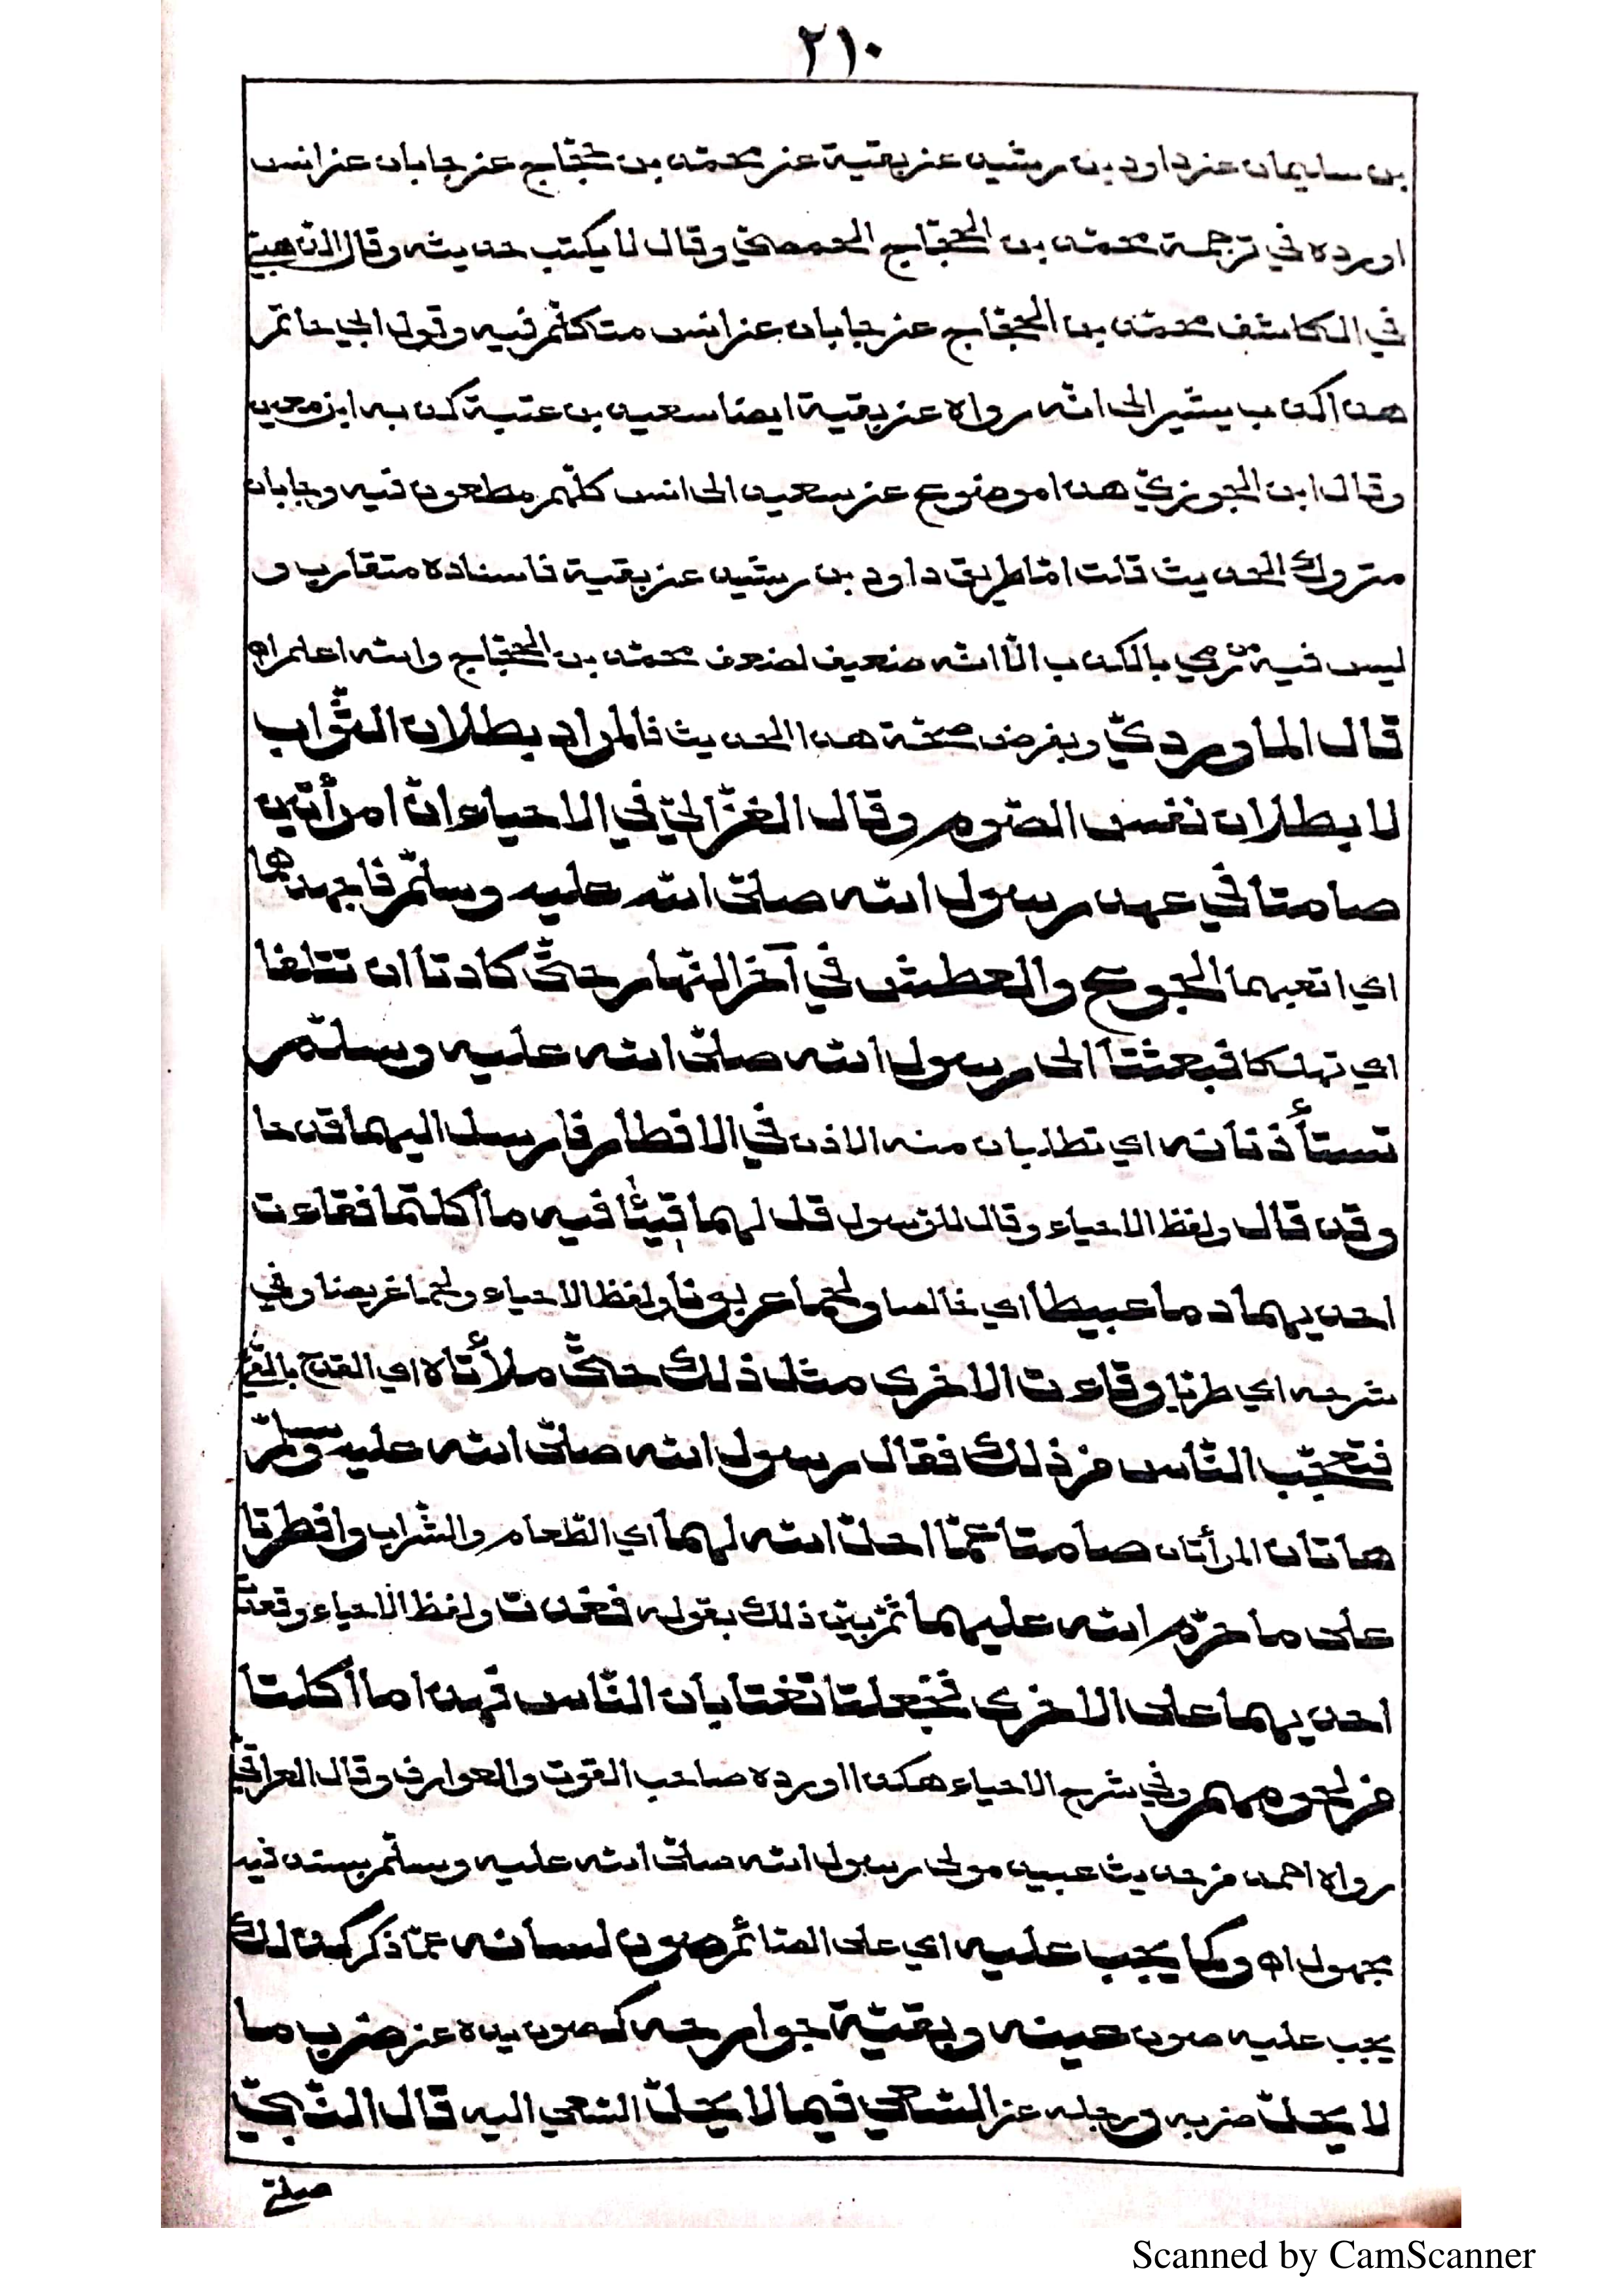 ٢١٠
بن سليمان عن داود بن رشيد عن بقية عن محمّد بن حجّاج عن جابان عن انس
اورده في ترجمة محمّد بن الحجّاج الحمصيّ وقال لا يكتب حديثه وقال الذّهبيّ
في الكاشف محمّد بن الحجّاج عن جابان عن انس متكلّم فيه وقول ابي حاتم
هذا كذب يشير الى انّه رواه عن بقية ايضا سعيد بن عتبة كذبه ابن معين
وقال ابن الجوزيّ هذا موضوع عن سعيد الى انس كلّهم مطعون فيه وجابان
متروك الحديث قلت امّا طريق داود بن رشيد عن بقية فاسناده متقارب و
ليس فيه من رمي بالكذب الّا انّه ضعيف لضعف محمّد بن الحجّاج والله اعلم اه
قال الماورديّ وبفرض صحّة هذا الحديث فالمراد بطلان الثّواب
لا بطلان نفس الصّوم وقال الغزّاليّ في الاحياء انّ امرأتين
صامتا في عهد رسول الله صلّى الله عليه وسلّم فاجهدهما
اي اتعبهما الجوع والعطش في آخر النّهار حتّى كادتا ان تتلفا
اي تهلكا فبعثتا الى رسول الله صلّى الله عليه وسلّم
تستأذنانه اي تطلبان منه الاذن في الافطار فارسل اليهما قدحا
وقد قال ولفظ الاحياء وقال للرّسول قل لهما قيئا فيه ما أكلتما فقاءت
احديهما دما عبيطا اي خالصا ولحما عربونا ولفظ الاحياء ولحما غريضا وفي
شرحه اي طريا وقاءت الاخرى مثل ذلك حتّى ملأتاه اي القدح بالقئ
فتعجّب النّاس من ذلك فقال رسول الله صلّى الله عليه وسلّم
هاتان المرأتان صامتا عمّا احلّ الله لهما اي الطّعام والشّراب وافطرتا
على ما حرّم الله عليهما ثمّ بيّن ذلك بقوله فغدت ولفظ الاحياء وقعدت
احديهما على الاخرى فجعلتا تغتابان النّاس فهذا ما أكلتا
من لحومهم وفي شرح الاحياء هكذا اورده صاحب القوت والعوارف وقال العراقيّ
رواه احمد من حديث عبيد مولى رسول الله صلّى الله عليه وسلّم بسند فيه
مجهول اه وكما يجب عليه اي على الصّائم صون لسانه عمّا ذكر كذلك
يجب عليه صون عينه وبقيّة جوارحه كصون يده عن ضرب ما
لا يحلّ ضربه ورجله عن السّعي فيما لا يحلّ السّعي اليه قال النّبيّ
صلّى
Scanned by CamScanner